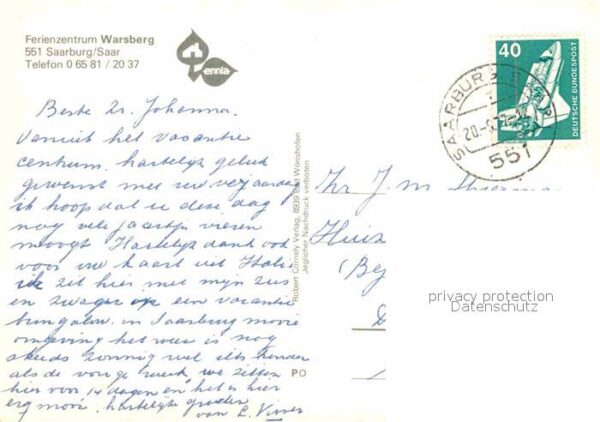 Ferienzentrum Warsberg
551 Saarburg/Saar
Telefon 0 65 81 / 20 37
ennia
Beste Zr. Johanna.
Vanuit het vacantie
centrum hartelijk geluk
gewenst met uw verjaardag
ik hoop dat u deze dag
nog vele jaartjes vieren
moogt Hartelijk dank ook
voor uw kaart uit Italië
ik zit hier met mijn zus
en zwager op een vacantie
bungalow in Saarburg mooie
omgeving het weer is nog
steeds zonnig wel iets minder
als de vorige week, we zitten
hier voor 14 dagen en het is hier
erg mooi. hartelijke groeten
van L. Visser
Robert Cornely Verlag, 8939 Bad Wörishofen
Jeglicher Nachdruck verboten
PO
40
DEUTSCHE BUNDESPOST
SAARBURG
20.-9.
551
Zr J. M.
Huiz
(Be
D
privacy protection
Datenschutz